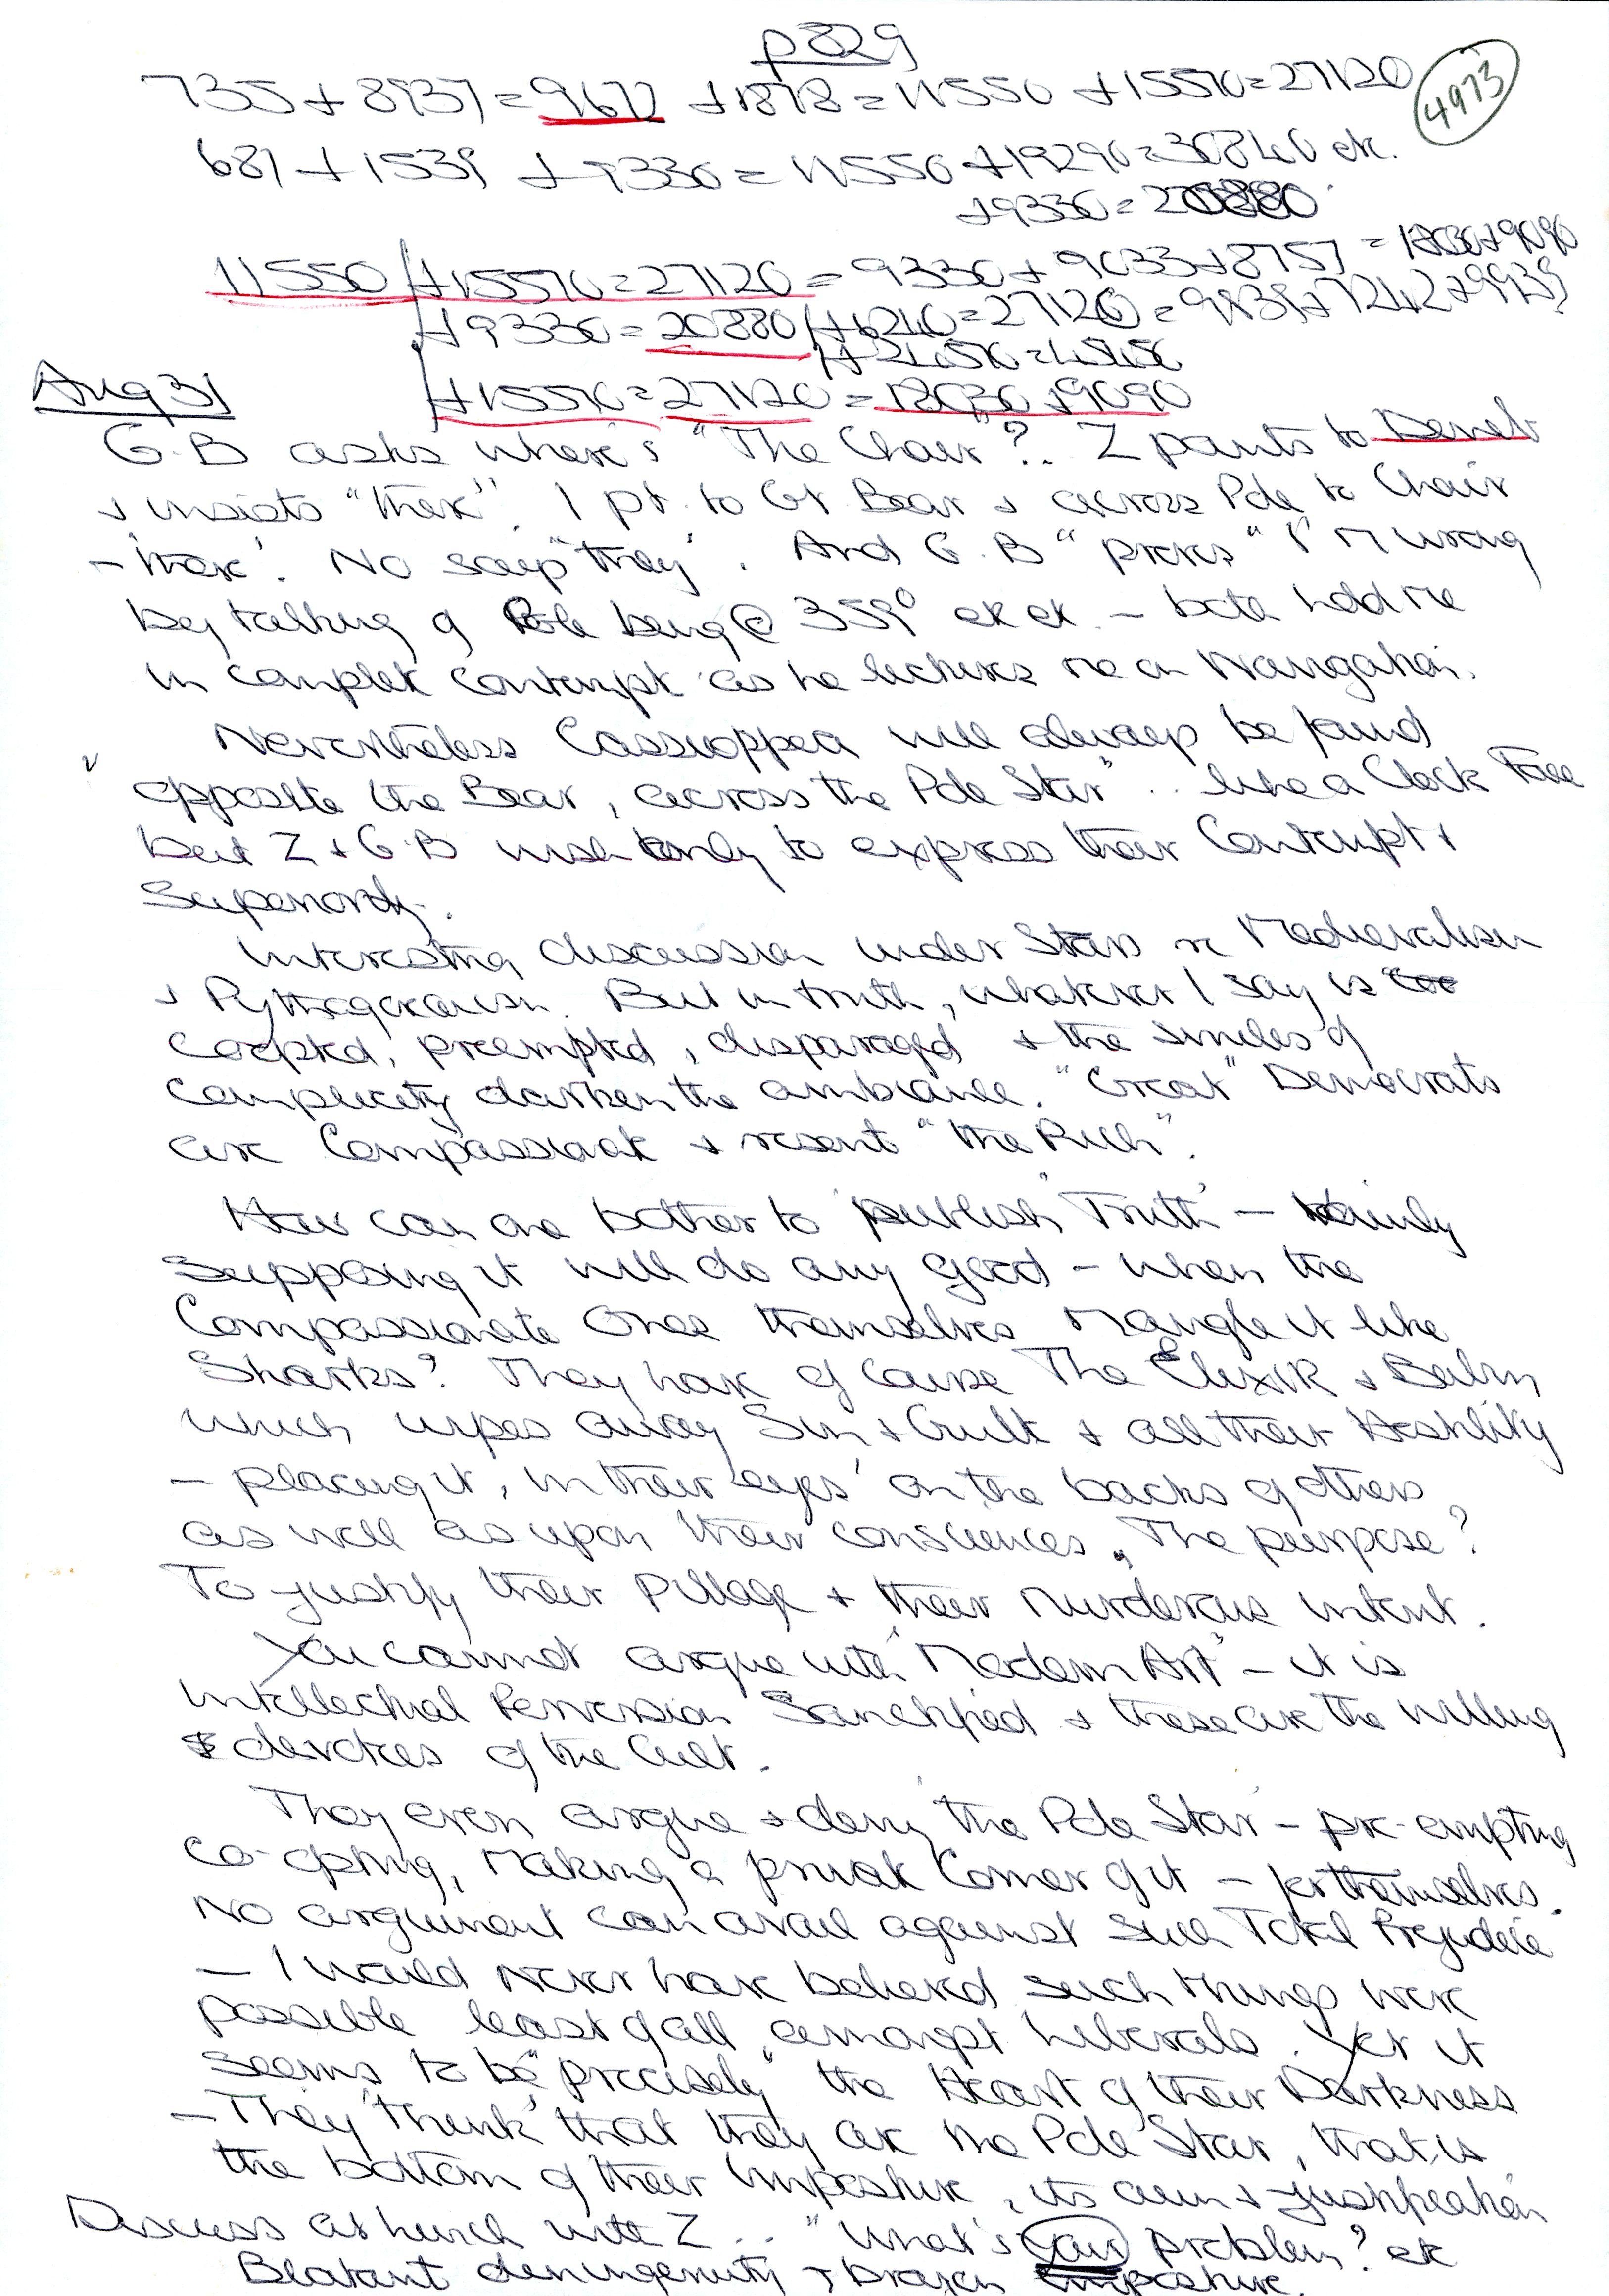 p 829
4973
735 + 8937 = 9672 + 1878 = 11550 + 15570 = 27120
681 + 1539 + 9330 = 11550 + 19290 = 30840 etc.
+ 9330 = 20880
11550 + 15570 = 27120 = 9330 + 9033 + 8757 = 18030 + 9090
+ 9330 = 20880 + 6240 = 27120 = 9939
+ 15570 = 27120 = 18030 + 9090
Aug 31
G.B asks where's "The Chair"?.. Z points to Deneb
+ insists "there". I pt. to Gt Bear + across Pole to Chair
– 'there'. No soap "they". And G.B "proves" I'm wrong
by talking of Pole being @ 359° etc etc. – both hold me
in complete contempt as he lectures me on Navigation.
Nevertheless Cassioppea will always be found
opposite the Bear, across the Pole Star".. like a Clock Face
but Z + G.B wish only to express their Contempt +
Superiority.
Interesting discussion under Stars re Medievalism
+ Pythagoreanism. But in truth, whatever I say is
coopted, preempted, disparaged + the smiles of
complicity darken the ambiance. "Great" Democrats
are Compassionate + resent "the Rich".
How can one bother to publish "Truth" – vainly
supposing it will do any good – when the
Compassionate Ones themselves Mangle it like
Sharks? They have of course The Elixir + Balm
which wipes away Sin + Guilt + all their Hostility
– placing it, in their 'eyes' on the backs of others
as well as upon their consciences. The purpose?
To justify their Pillage + their Murderous intent.
You cannot argue with "Modern Art" – it is
Intellectual Perversion Sanctified + these are the willing
devotees of the Cult.
They even argue + deny the Pole Star – pre-empting
co-opting, Making a private Corner of it – for themselves.
No argument can avail against such Total Prejudice
– I would never have believed such things were
possible least of all amongst Liberals. Yet it
seems to be "precisely" the Heart of their Darkness
– They 'think' that they are the Pole Star, that is
the bottom of their Imposture, its aim + justification
Discuss at lunch with Z... "What's your problem? etc
Blatant disingenuity + brazen imposture.